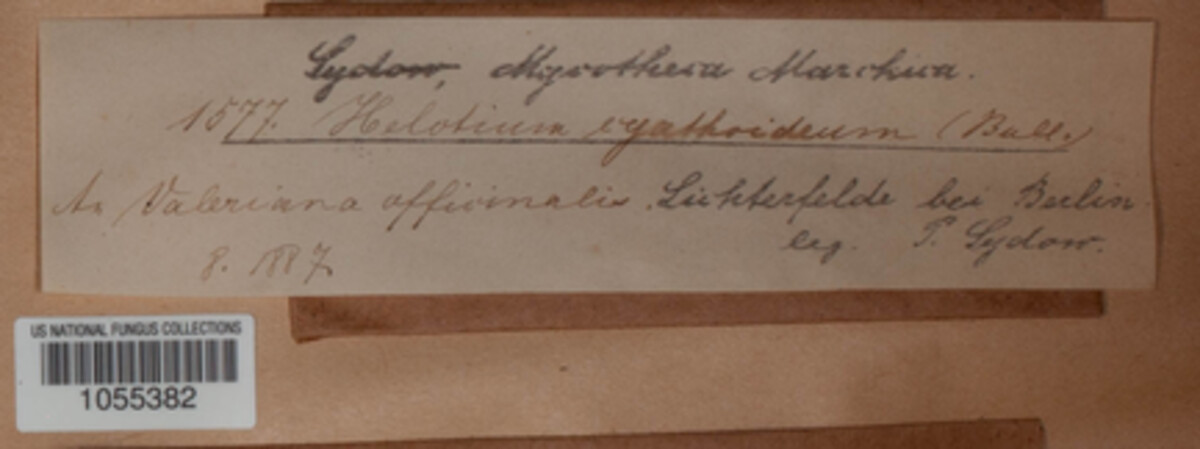 Sydow, Mycotheca Marchica.
1577. Helotium cyathoideum (Bull.)
An Valeriana officinalis. Lichterfelde bei Berlin.
leg. P. Sydow.
8. 1887
US NATIONAL FUNGUS COLLECTIONS
1055382